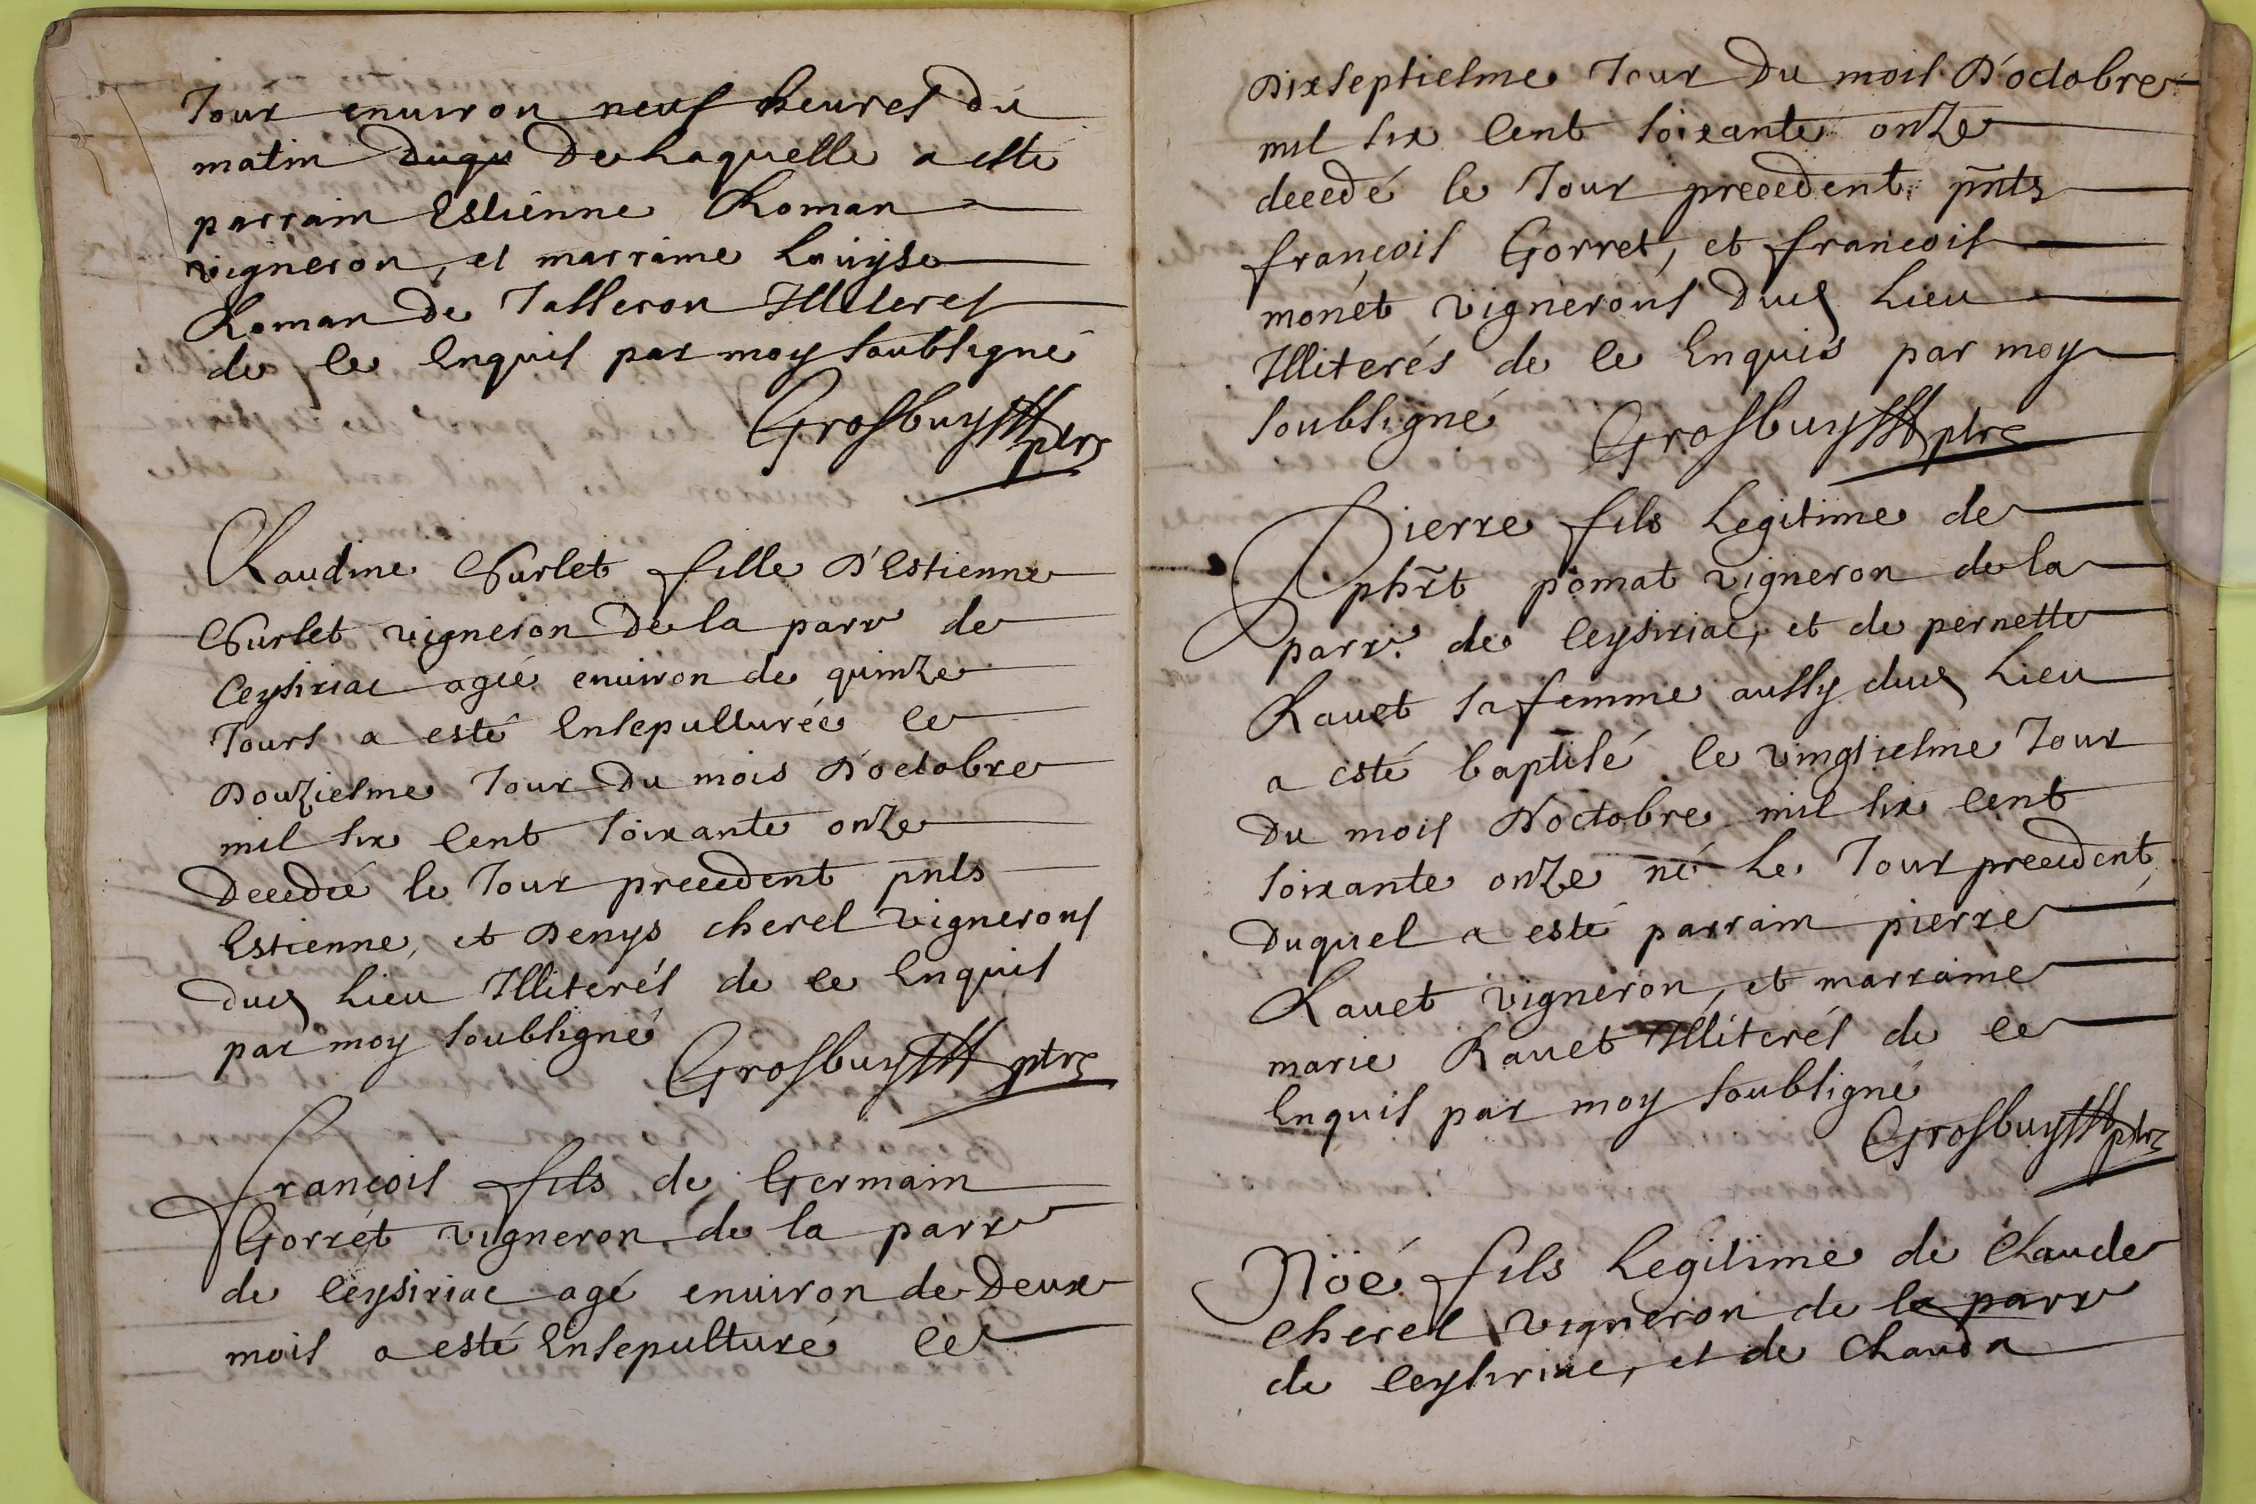 Jour enuiron neuf heures du
matin duqu de Laquelle a esté
parrain Estienne Roman
vigneron, et marraine Louyse
Roman de Jasseron Illiteres
de ce Enquis par moy soubsigné
Grosbuys ptre
Claudine Curlet fille d'Estienne
Curlet vigneron de la parr de
Ceysiriac agée enuiron de quinze
Jours a esté Ensepulturée ce
douziesme Jour du mois d'octobre
mil six Cent soixante onze
decedée le Jour precedent pnts
Estienne, et denys cherel vignerons
dud Lieu Illiterés de ce Enquis
par moy soubsigné
Grosbuys ptre
François fils de Germain
Gorret vigneron de la parr
de Ceysiriac agé enuiron de deux
mois a esté Ensepulturé ce
dixseptiesme Jour du mois d'octobre
mil six Cent soixante onze
decedé le Jour precedent pnts
françois Gorret, et françois
monet vignerons dud Lieu
Illiterés de ce Enquis par moy
soubsigné
Grosbuys ptre
Pierre fils Legitime de
phrt pomat vigneron de la
parr. de Ceysiriac, et de pernette
Rauet sa femme aussy dud Lieu
a esté baptisé le vingtiesme Jour
du mois d'octobre mil six cent
soixante onze né le Jour precedent,
duquel a esté parrain pierre
Rauet vigneron, et marraine
marie Rauet Illiterés de ce
Enquis par moy soubsigné
Grosbuys ptre
Nöé fils Legitime de Claude
Cherel vigneron de la parr
de Ceysiriac, et de Clauda